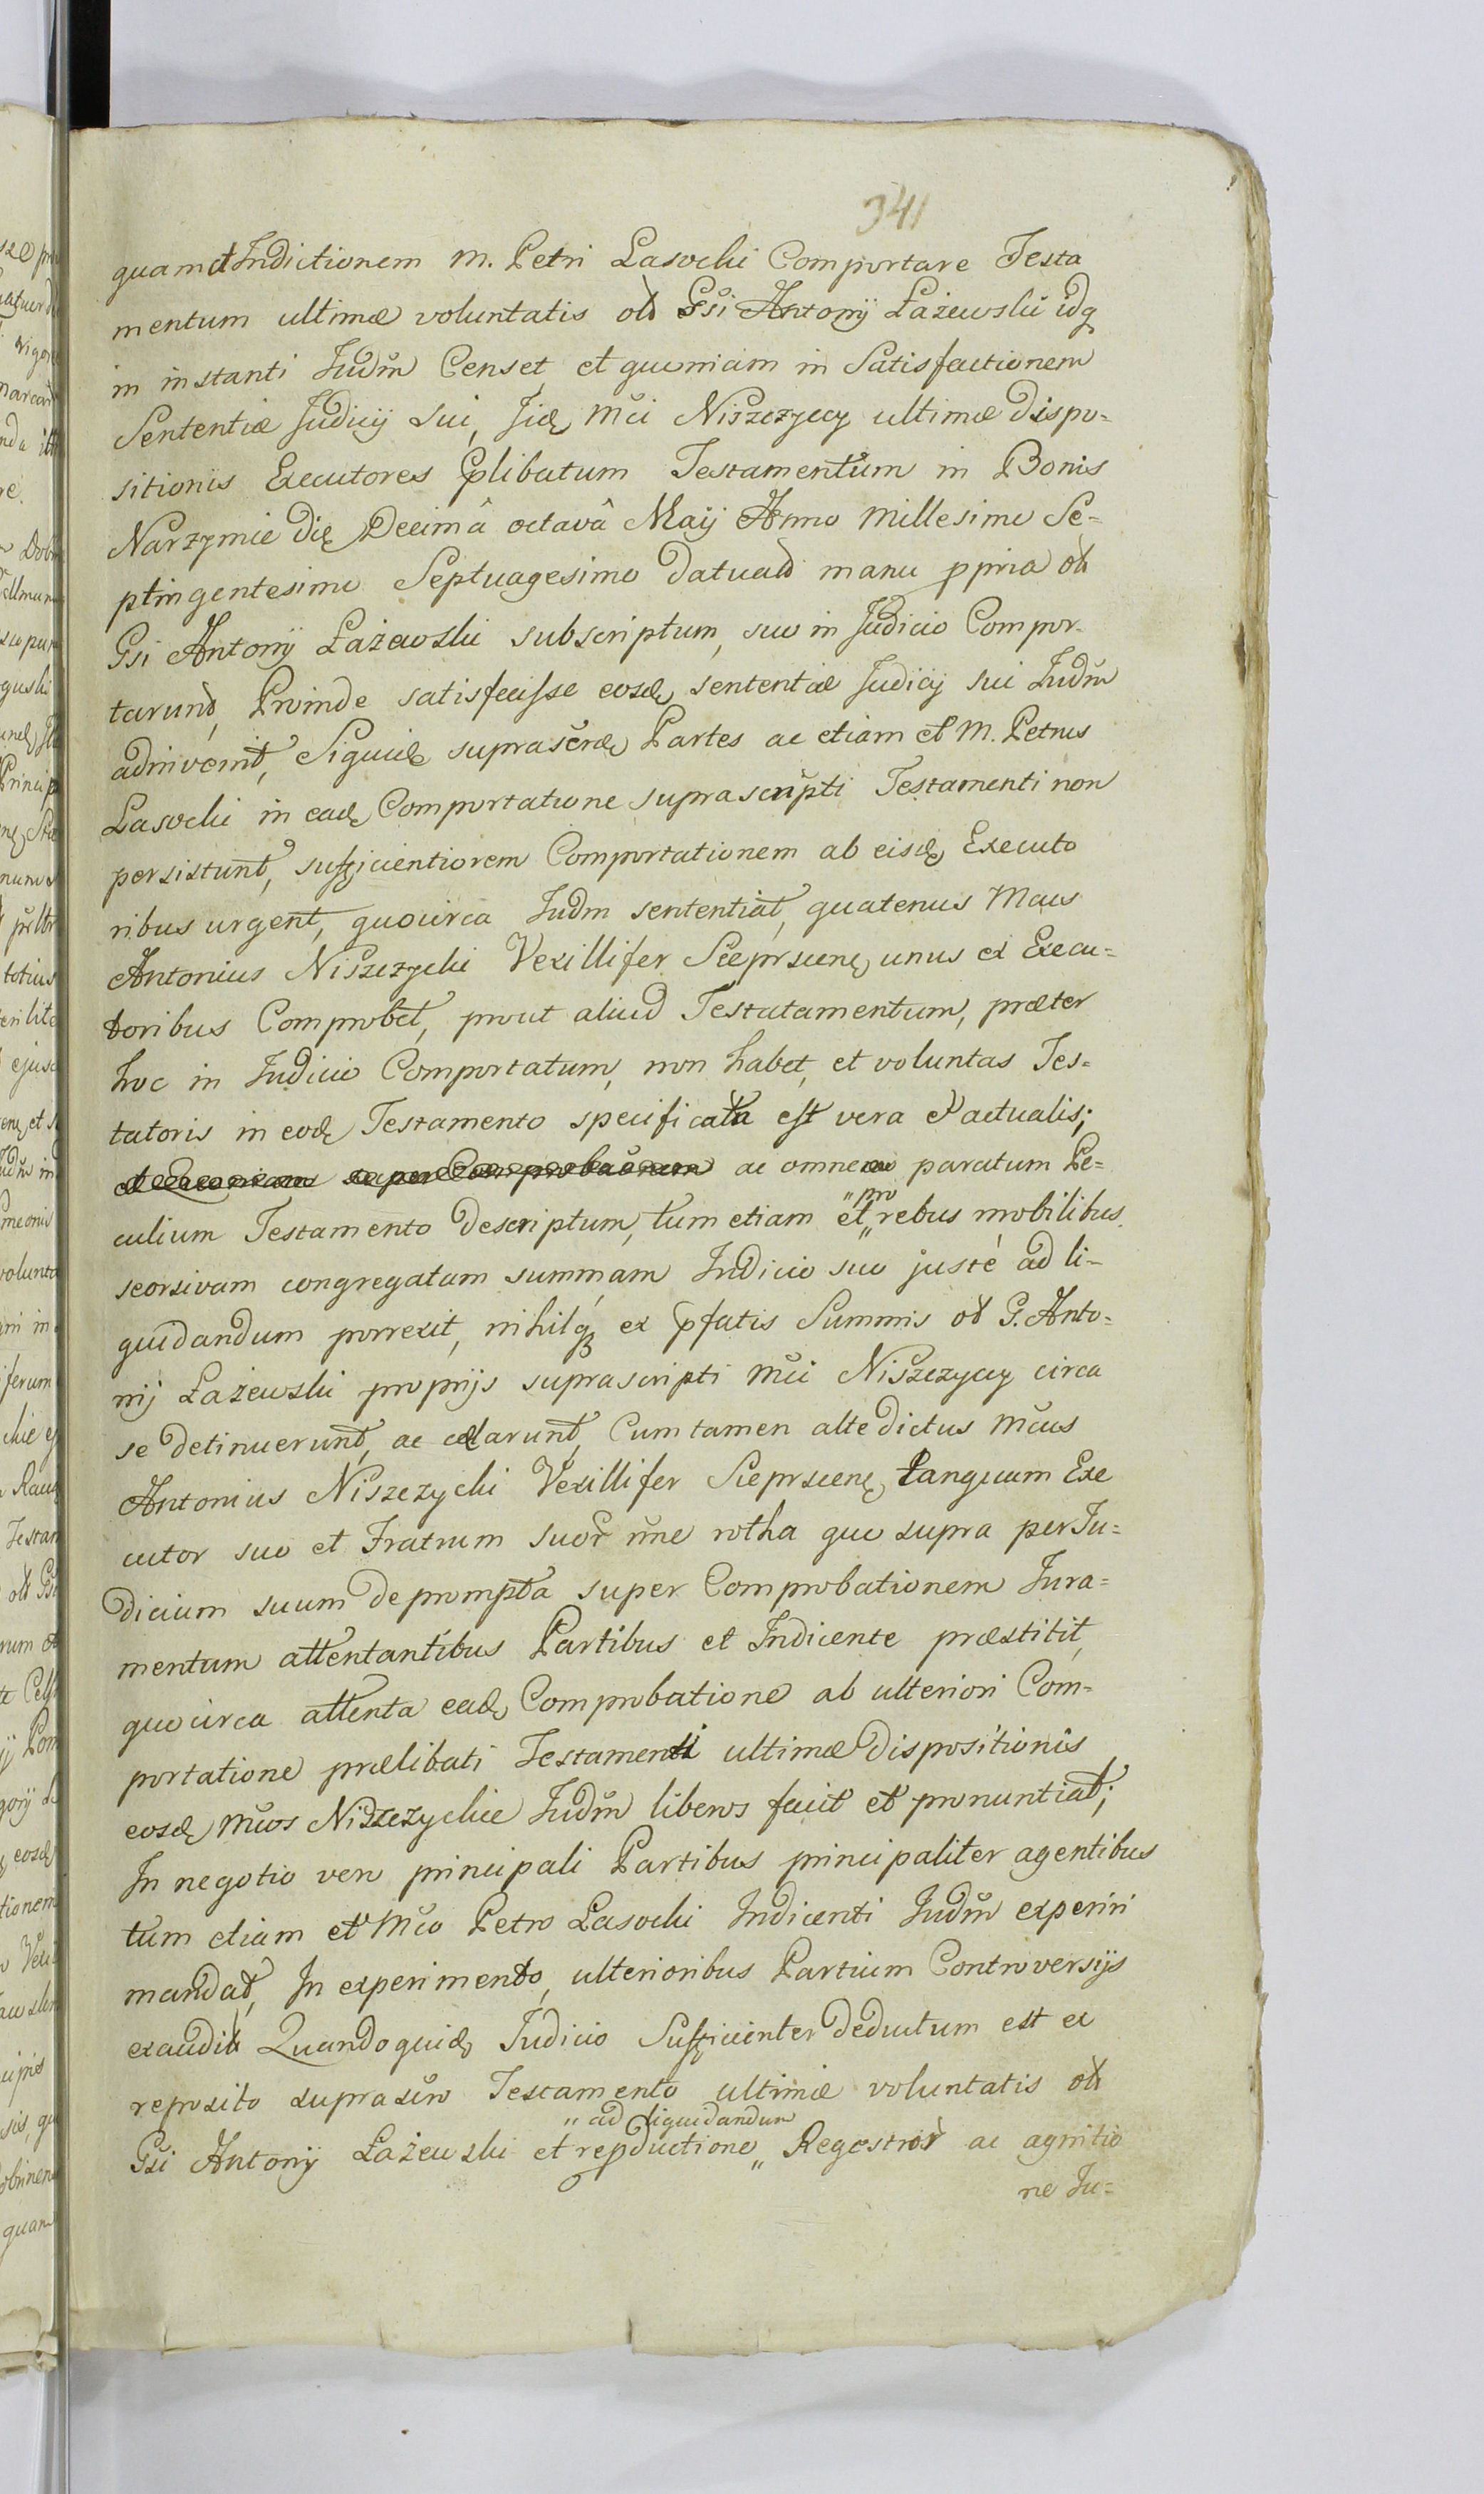 341
quam et Indictionem M. Petri Lasocki Comportare Testa
mentum ultimæ voluntatis olt Gsi Antonij Łażewski idq
in instanti Judm Censet, et quoniam in Satisfactionem
Sententiæ Judicij sui, Jid Mci Niszczyccy ultimæ dispo-
sitionis Executores plibatum Testamentum in Bonis
Narzymie die Decimâ octavâ Maij Anno Millesimo Se-
ptingentesimo Septuagesimo datuad manu ppria olt
Gsi Antonij Łażewski subscriptum, suo in Judicio Compor-
tarunt, Proinde satisfecisse eosd sententiæ Judicij sui Judm
adinvenit, Siquid suprascræ Partes ac etiam et M. Petrus
Lasocki in ead Comportatione suprascripti Testamenti non
persistunt, sufficientiorem Comportationem ab eisd Executo
ribus urgent, quocirca Judm sententiat, quatenus Mcus
Antonius Niszczycki Vexillifer Sieprscen, unus ex Execu-
toribus Comprobet, prout aliud Testatamentum, præter
hoc in Judicio Comportatum, non habet, et voluntas Tes-
tatoris in eod Testamento specificata est vera et actualis;
ac omne paratum Pe-
culium Testamento descriptum, tum etiam et "pro" rebus mobilibus
seorsivam congregatam summam Judicio suo justé ad li-
quidandum porrexit, nihilq ex pfatis Summis olt G. Anto-
nij Łażewski proprijs suprascripti Mci Niszczyccy circa
se detinuerunt, ac celarunt, Cum tamen altedictus Mcus
Antonius Niszczycki Vexillifer Sieprscen, tanquam Exe
cutor suo et Fratrum suor nne rotha quo supra per Ju-
dicium suum deprompta super Comprobationem Jura-
mentum attentantibus Partibus et Indicente præstitit,
quocirca attenta ead Comprobatione ab ulteriori Com-
portatione prælibati Testamenti ultimæ dispositionis
eosd Mcos Niszczyckie Judm liberos facit et pronuntiat;
In negotio vero principali Partibus principaliter agentibus
tum etiam et Mco Petro Lasocki Indicenti Judm experiri
mandat, In experimento, ulterioribus Partium Controversijs
exaudit Quandoquid Judicio Sufficienter deductum est ex
reposito suprascro Testamento ultimæ voluntatis olt
Gsi Antonij Łażewski et repductione "ad liquidandum" Regestror ac agnitio
ne Ju-